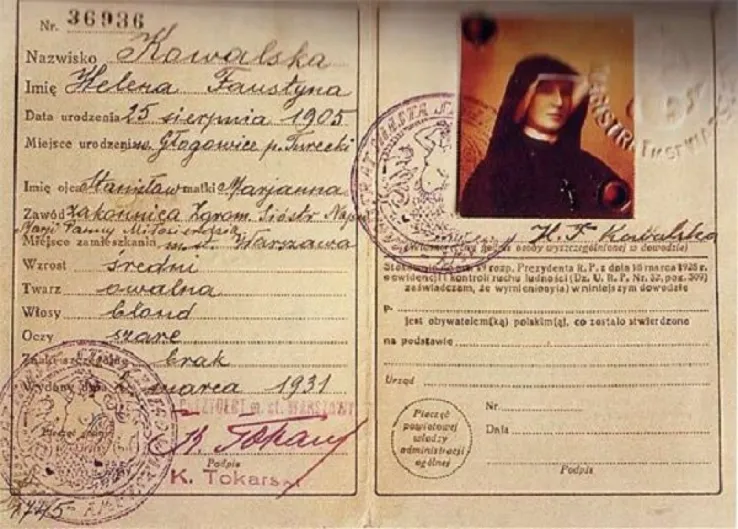 Nr. 36936
Nazwisko Kowalska
Imię Helena Faustyna
Data urodzenia 25 sierpnia 1905
Miejsce urodzenia Głogowice p. Turecki
Imię ojca Stanisław matki Marjanna
Zawód Zakonnica Zgrom. Sióstr Najś.
Marji Panny Miłosierdzia
Miejsce zamieszkania m. st. Warszawa
Wzrost średni
Twarz owalna
Włosy blond
Oczy szare
Znaki szczególne brak
Wydany dnia marca 1931
m. st. WARSZAWY
Podpis
K. Tokarski
H. F. Kowalska
(Własnoręczny podpis osoby wyszczególnionej w dowodzie)
rozp. Prezydenta R. P. z dnia 16 marca 1928 r.
o ewidencji i kontroli ruchu ludności (Dz. U. R. P. Nr. 32, poz. 309)
zaświadczam, że wymieniony(a) w niniejszym dowodzie
p.
jest obywatelem(ką) polskim(ą), co zostało stwierdzone
na podstawie
Urząd
Pieczęć
powiatowej
władzy
administracji
ogólnej
Nr.
Data
Podpis